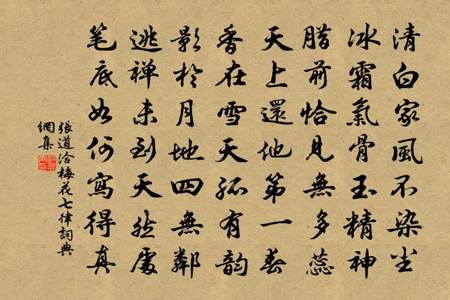 清白家風不染尘
冰霜氣骨玉精神
腊前恰見無多蕊
天上還他第一春
香在雪天孤有韵
影於月地四無鄰
逃禅未到天然處
笔底如何寫得真
張道洽梅花七律詞典
網集